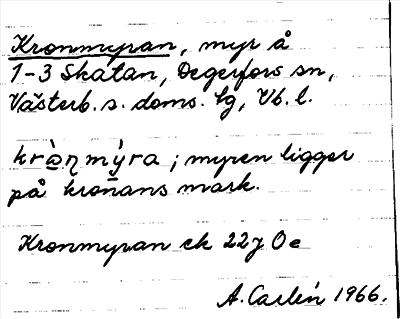 Kronmyran, myr å
1-3 Skatan, Degerfors sn,
Västerb. s. doms. lg, Vb. l.
krɷ̀ꞃmy̍ra ; myren ligger
på kronans mark.
Kronmyran ek 22J Oe
A. Carlén 1966.